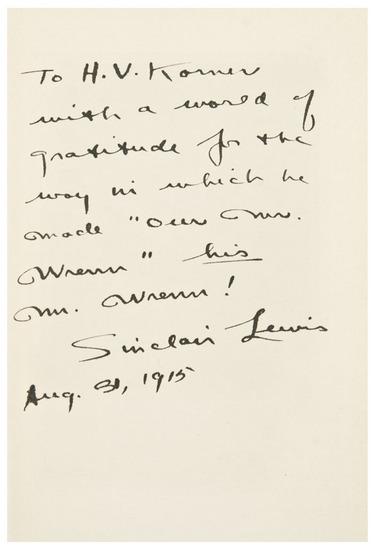 To H.V. Korner
with a world of
gratitude for the
way in which he
made "Our Mr.
Wrenn" his
Mr. Wrenn!
Sinclair Lewis
Aug. 31, 1915